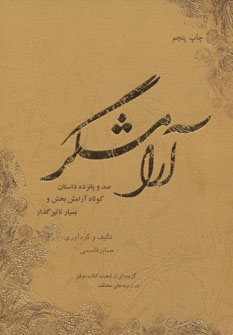 چاپ پنجم
آرامشگر
صد و پانزده داستان
کوتاه آرامش بخش و
بسیار تاثیرگذار
تألیف و گردآوری:
صابر قاسمی
گزیده‌ای از شصت کتاب موفق
در زمینه‌های مختلف